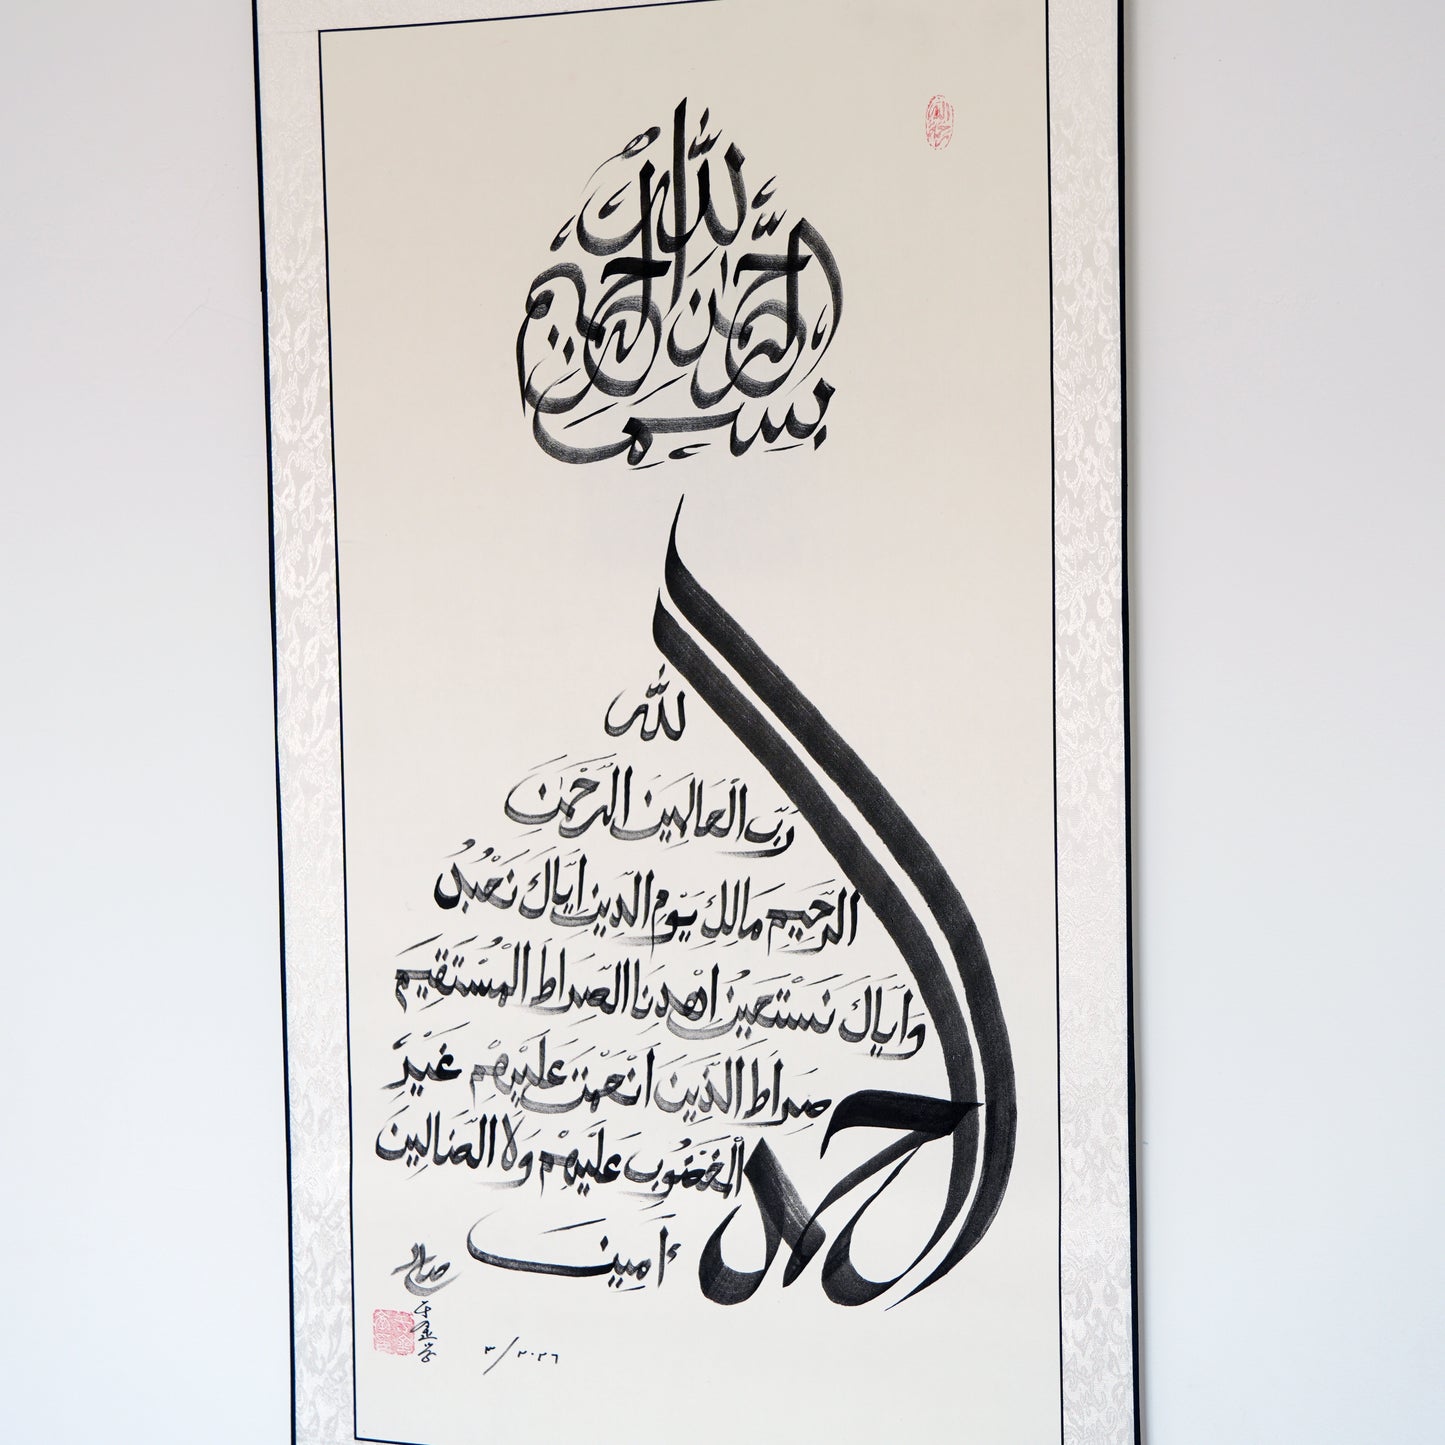 بِسْمِ اللّٰهِ الرَّحْمٰنِ الرَّحِيْمِ
الحمد
لِلّٰه
رَبِّ الْعَالَمِيْنَ الرَّحْمٰنِ
الرَّحِيْمِ مَالِكِ يَوْمِ الدِّيْنِ اِيَّاكَ نَعْبُدُ
وَاِيَّاكَ نَسْتَعِيْنُ اِهْدِنَا الصِّرَاطَ الْمُسْتَقِيْمَ
صِرَاطَ الَّذِيْنَ اَنْعَمْتَ عَلَيْهِمْ غَيْرِ
الْمَغْضُوْبِ عَلَيْهِمْ وَلَا الضَّالِيْنَ
اٰمِيْن
صالح
٣/٢٠٢٦